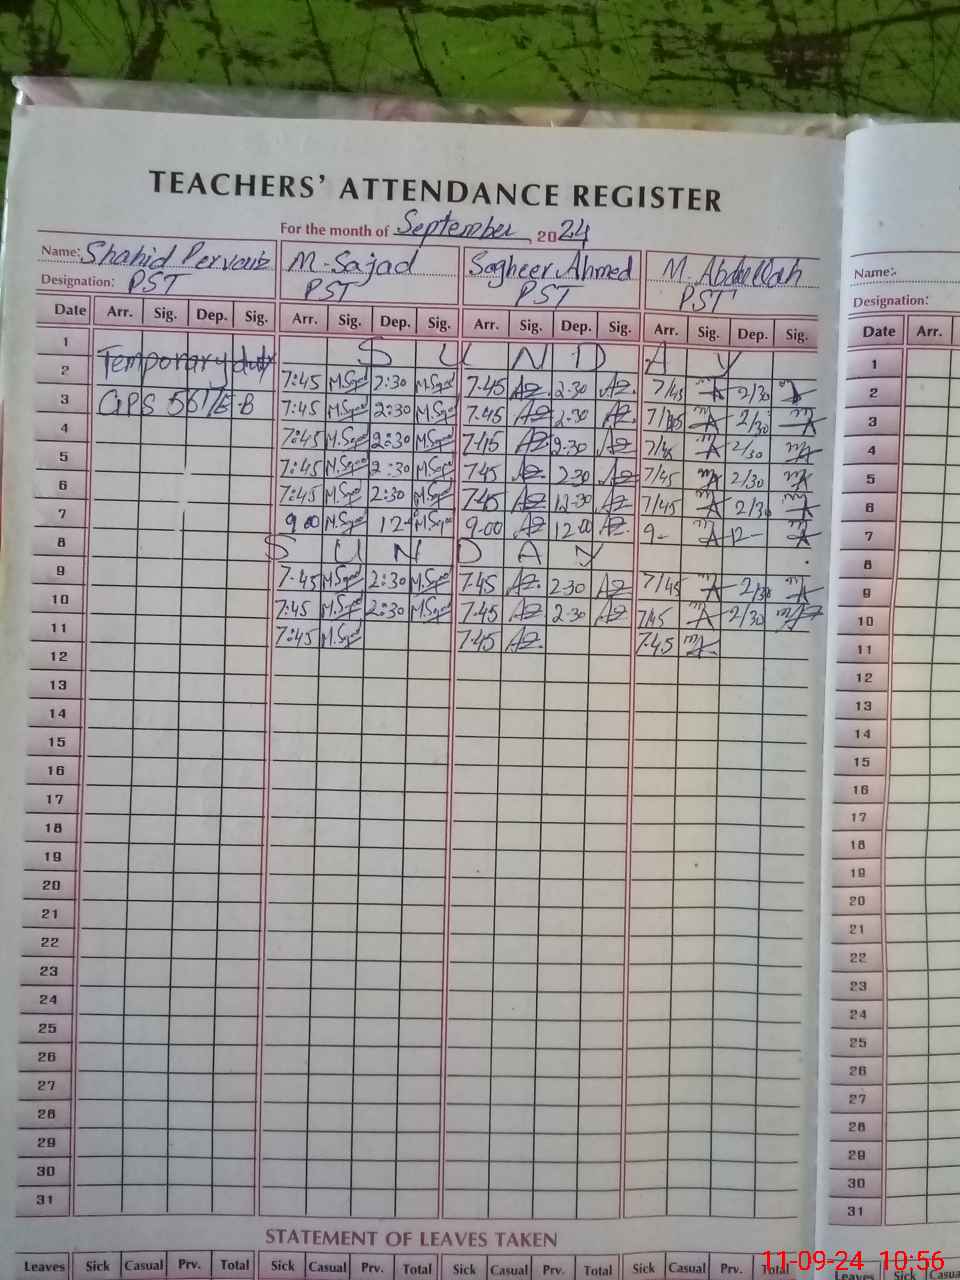 TEACHERS' ATTENDANCE REGISTER
For the month of September, 2024
Name: Shahid Pervaiz M-Sajad Sagheer Ahmed M. Abdullah Name:-
Designation: PST PST PST PST Designation:
Date Arr. Sig. Dep. Sig. Arr. Sig. Dep. Sig. Arr. Sig. Dep. Sig. Arr. Sig. Dep. Sig. Date Arr.
1 S U N D A Y 1
2 Temporary duty 7:45 M.Sajad 2:30 M.Sajad 7.45 2-30 7/45 2/30 2
3 GPS 7:45 M.Sajad 2:30 M.Sajad 7.45 2.30 2/30 3
4 7:45 M.Sajad 2:30 M.Sajad 7.45 2.30 7/45 2/30 4
5 7:45 M.Sajad 2:30 M.Sajad 7.45 2.30 7/45 2/30 5
6 7:45 M.Sajad 2:30 M.Sajad 7.45 7/45 2/30 6
7 9 00 M.Sajad 12- M.Sajad 9.00 12.00 9- 12- 7
8 S U N D A Y 8
9 7.45 M.Sajad 2:30 M.Sajad 7.45 2.30 7/45 2/30 9
10 7:45 M.Sajad 2:30 M.Sajad 7.45 2.30 7/45 2/30 10
11 7:45 M.Sajad 7.45 7.45 11
12 12
13 13
14 14
15 15
16 16
17 17
18 18
19 19
20 20
21 21
22 22
23 23
24 24
25 25
26 26
27 27
28 28
29 29
30 30
31 31
STATEMENT OF LEAVES TAKEN
Leaves Sick Casual Prv. Total Sick Casual Prv. Total Sick Casual Prv. Total Sick Casual Prv. Total Leaves Sick
11-09-24 10:56